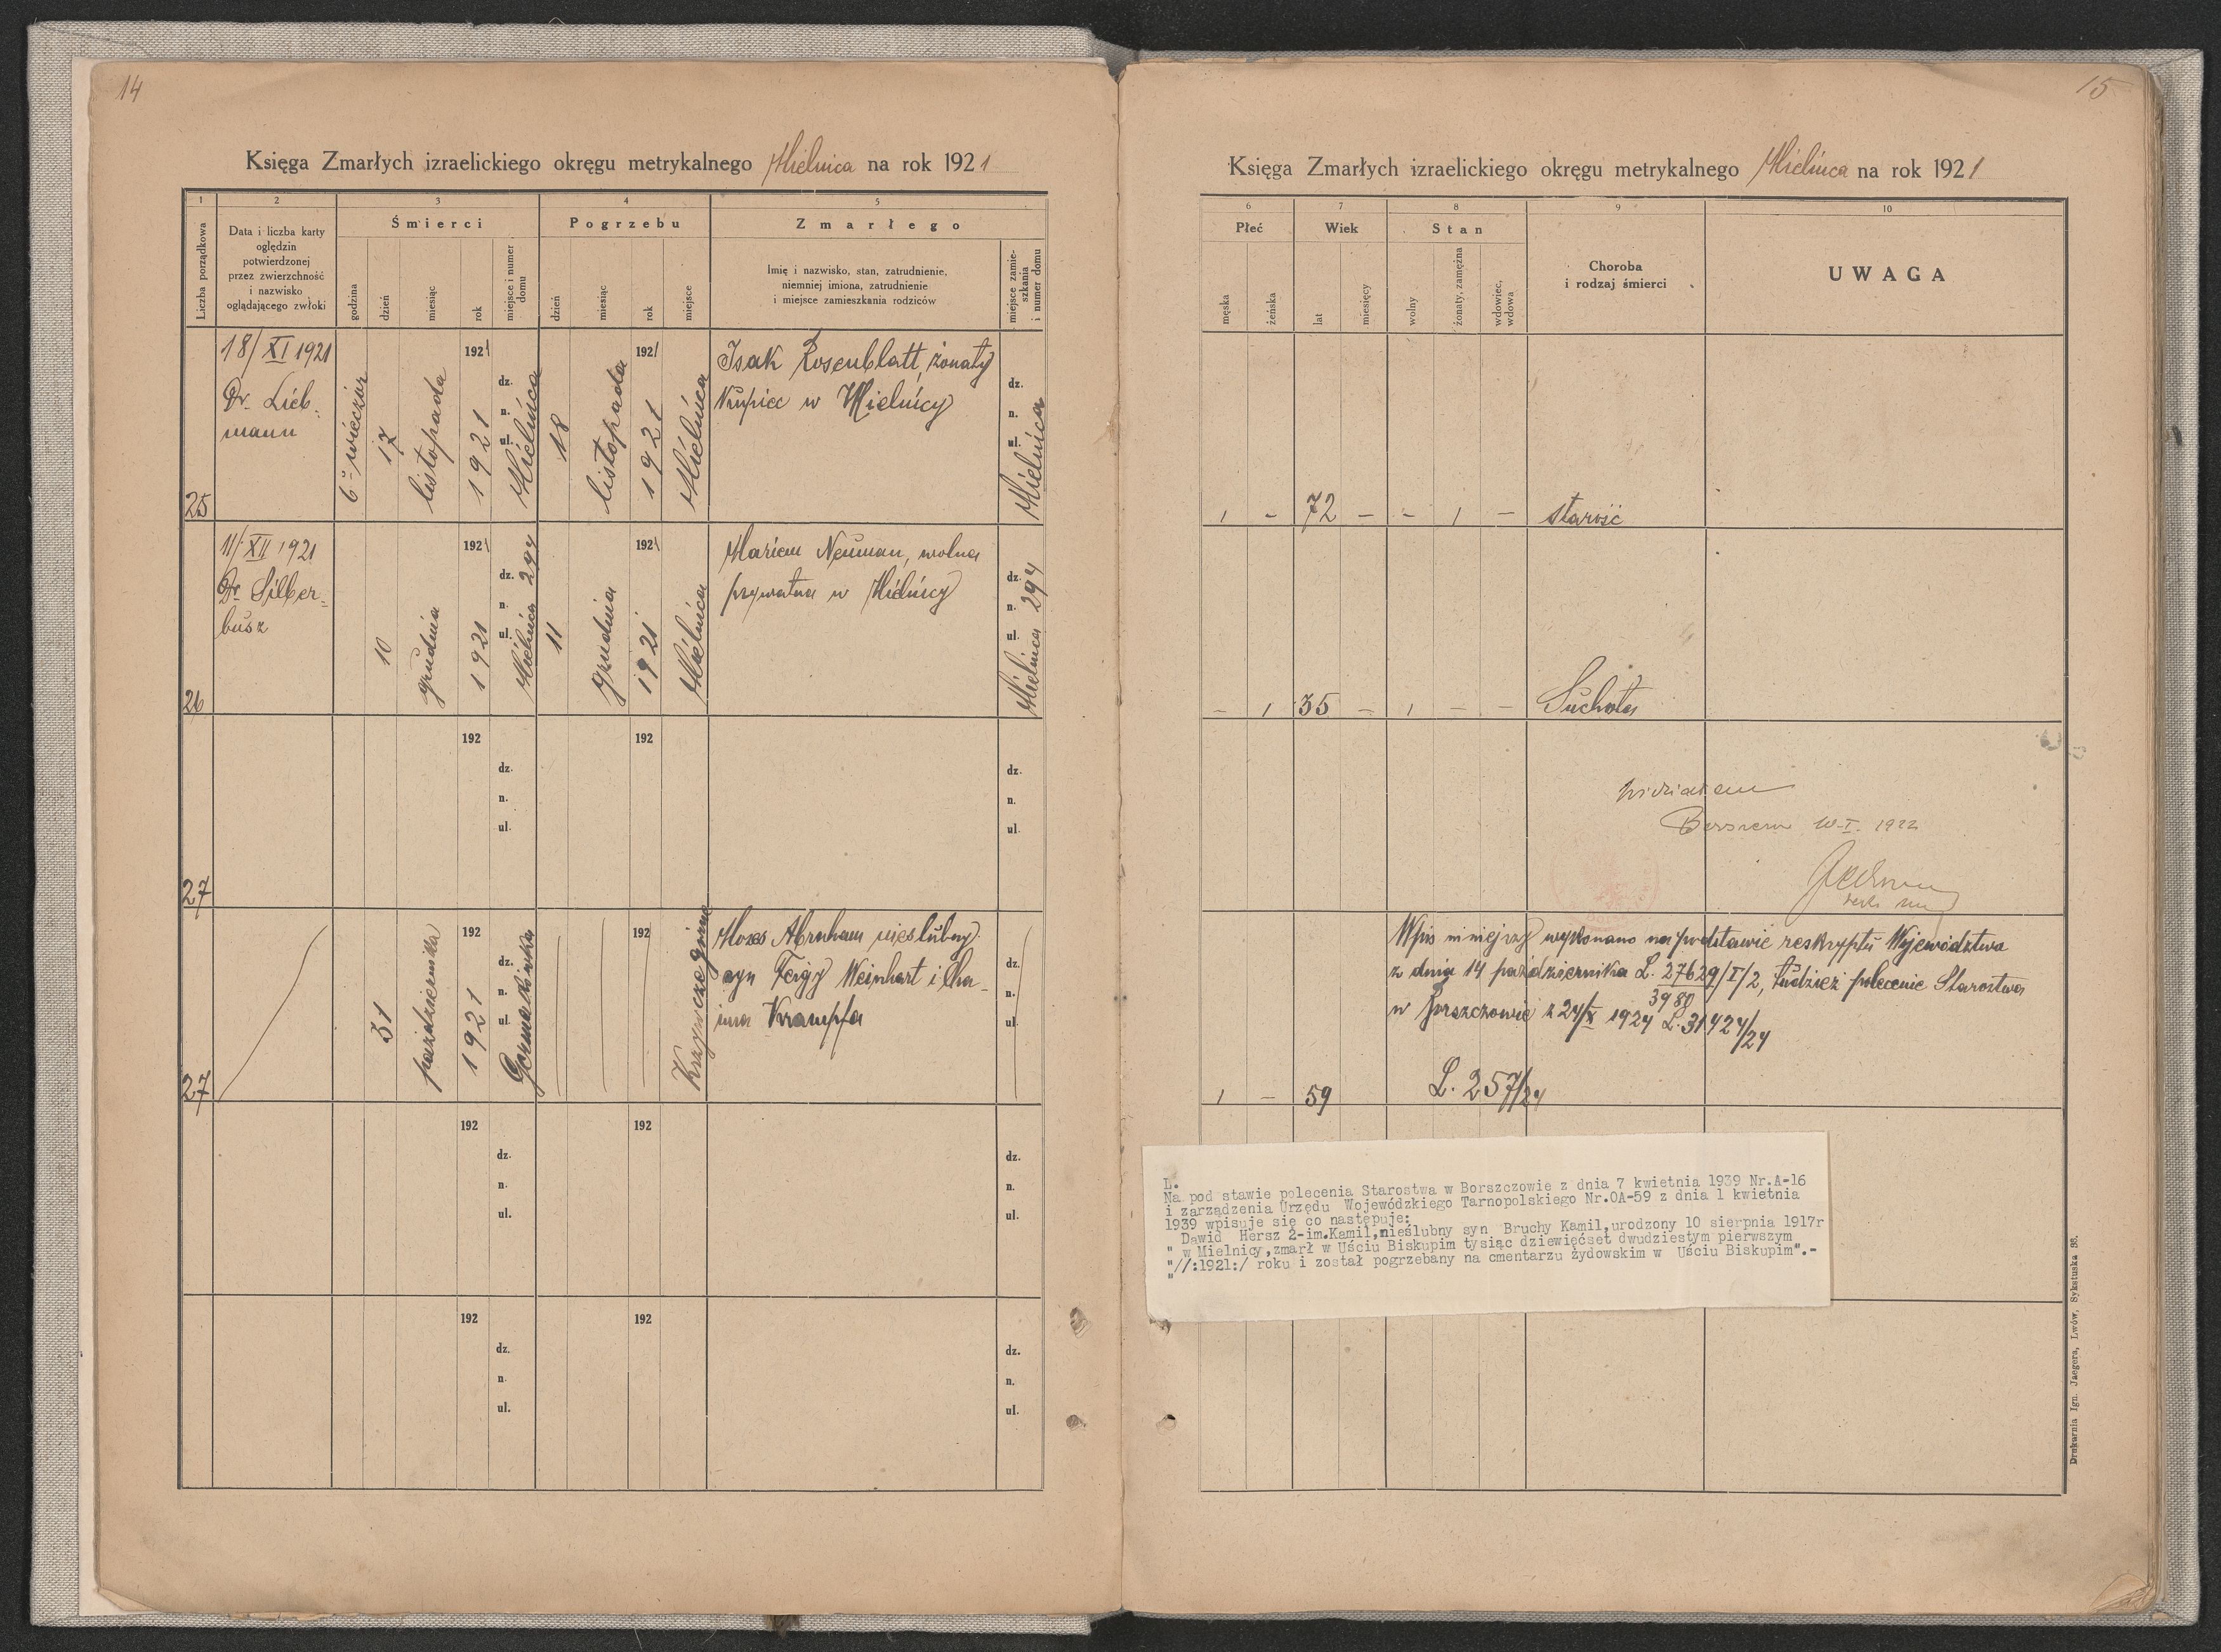 14
Księga Zmarłych izraelickiego okręgu metrykalnego Mielnica na rok 1921
1
2
3
4
5
Liczba porządkowa
Data i liczba karty
oględzin
potwierdzonej
przez zwierzchność
i nazwisko
oglądającego zwłoki
Śmierci
godzina
dzień
miesiąc
rok
miejsce i numer
domu
Pogrzebu
dzień
miesiąc
rok
miejsce
Zmarłego
Imię i nazwisko, stan, zatrudnienie,
niemniej imiona, zatrudnienie
i miejsce zamieszkania rodziców
miejsce zamie-
szkania
i numer domu
25
18/XI 1921
Dr. Lieb-
mann
6 wieczór
17
listopada
1921
1921
dz.
n.
ul.
Mielnica
18
listopada
1921
1921
Mielnica
Isak Rosenblatt, żonaty
Kupiec w Mielnicy
dz.
n.
ul.
Mielnica
26
11/XII 1921
Dr. Silber-
busz
10
grudnia
1921
1921
dz.
n.
ul.
Mielnica 294
11
grudnia
1921
1921
Mielnica
Mariem Neuman, wolna
prywatna w Mielnicy
dz.
n.
ul.
Mielnica 294
27
192
dz.
n.
ul.
192
dz.
n.
ul.
27
31
października
192
1921
dz.
n.
ul.
192
Krzywcze górne
Mozes Abraham nieślubny
syn Feigy Weinhart i Cha-
ima Krampfa
dz.
n.
ul.
192
dz.
n.
ul.
192
dz.
n.
ul.
192
dz.
n.
ul.
192
dz.
n.
ul.
15
Księga Zmarłych izraelickiego okręgu metrykalnego Mielnica na rok 1921
6
7
8
9
10
Płeć
męska
żeńska
Wiek
lat
miesięcy
Stan
wolny
żonaty, zamężna
wdowiec,
wdowa
Choroba
i rodzaj śmierci
UWAGA
1 - 72 - - 1 - starość
- 1 35 - 1 - - Suchota
Widziałem
10.I. 1922
Wpis niniejszy wykonano na podstawie reskryptu Województwa
z dnia 14 października L. 27629/I/2, tudzież polecenie Starostwa
3980
w Borszczowie z 24/X 1924 L. 31424/24
L. 257/24
1 - 59
L.
Na pod stawie polecenia Starostwa w Borszczowie z dnia 7 kwietnia 1939 Nr.A-16
i zarządzenia Urzędu Wojewódzkiego Tarnopolskiego Nr.OA-59 z dnia 1 kwietnia
1939 wpisuje się co następuje:
Dawid Hersz 2-im.Kamil,nieślubny syn Bruchy Kamil,urodzony 10 sierpnia 1917r
" w Mielnicy,zmarł w Uściu Biskupim tysiąc dziewięćset dwudziestym pierwszym
"//:1921:/ roku i został pogrzebany na cmentarzu żydowskim w Uściu Biskupim".-
"
Drukarnia Ign. Jaegera, Lwów, Sykstuska 33.